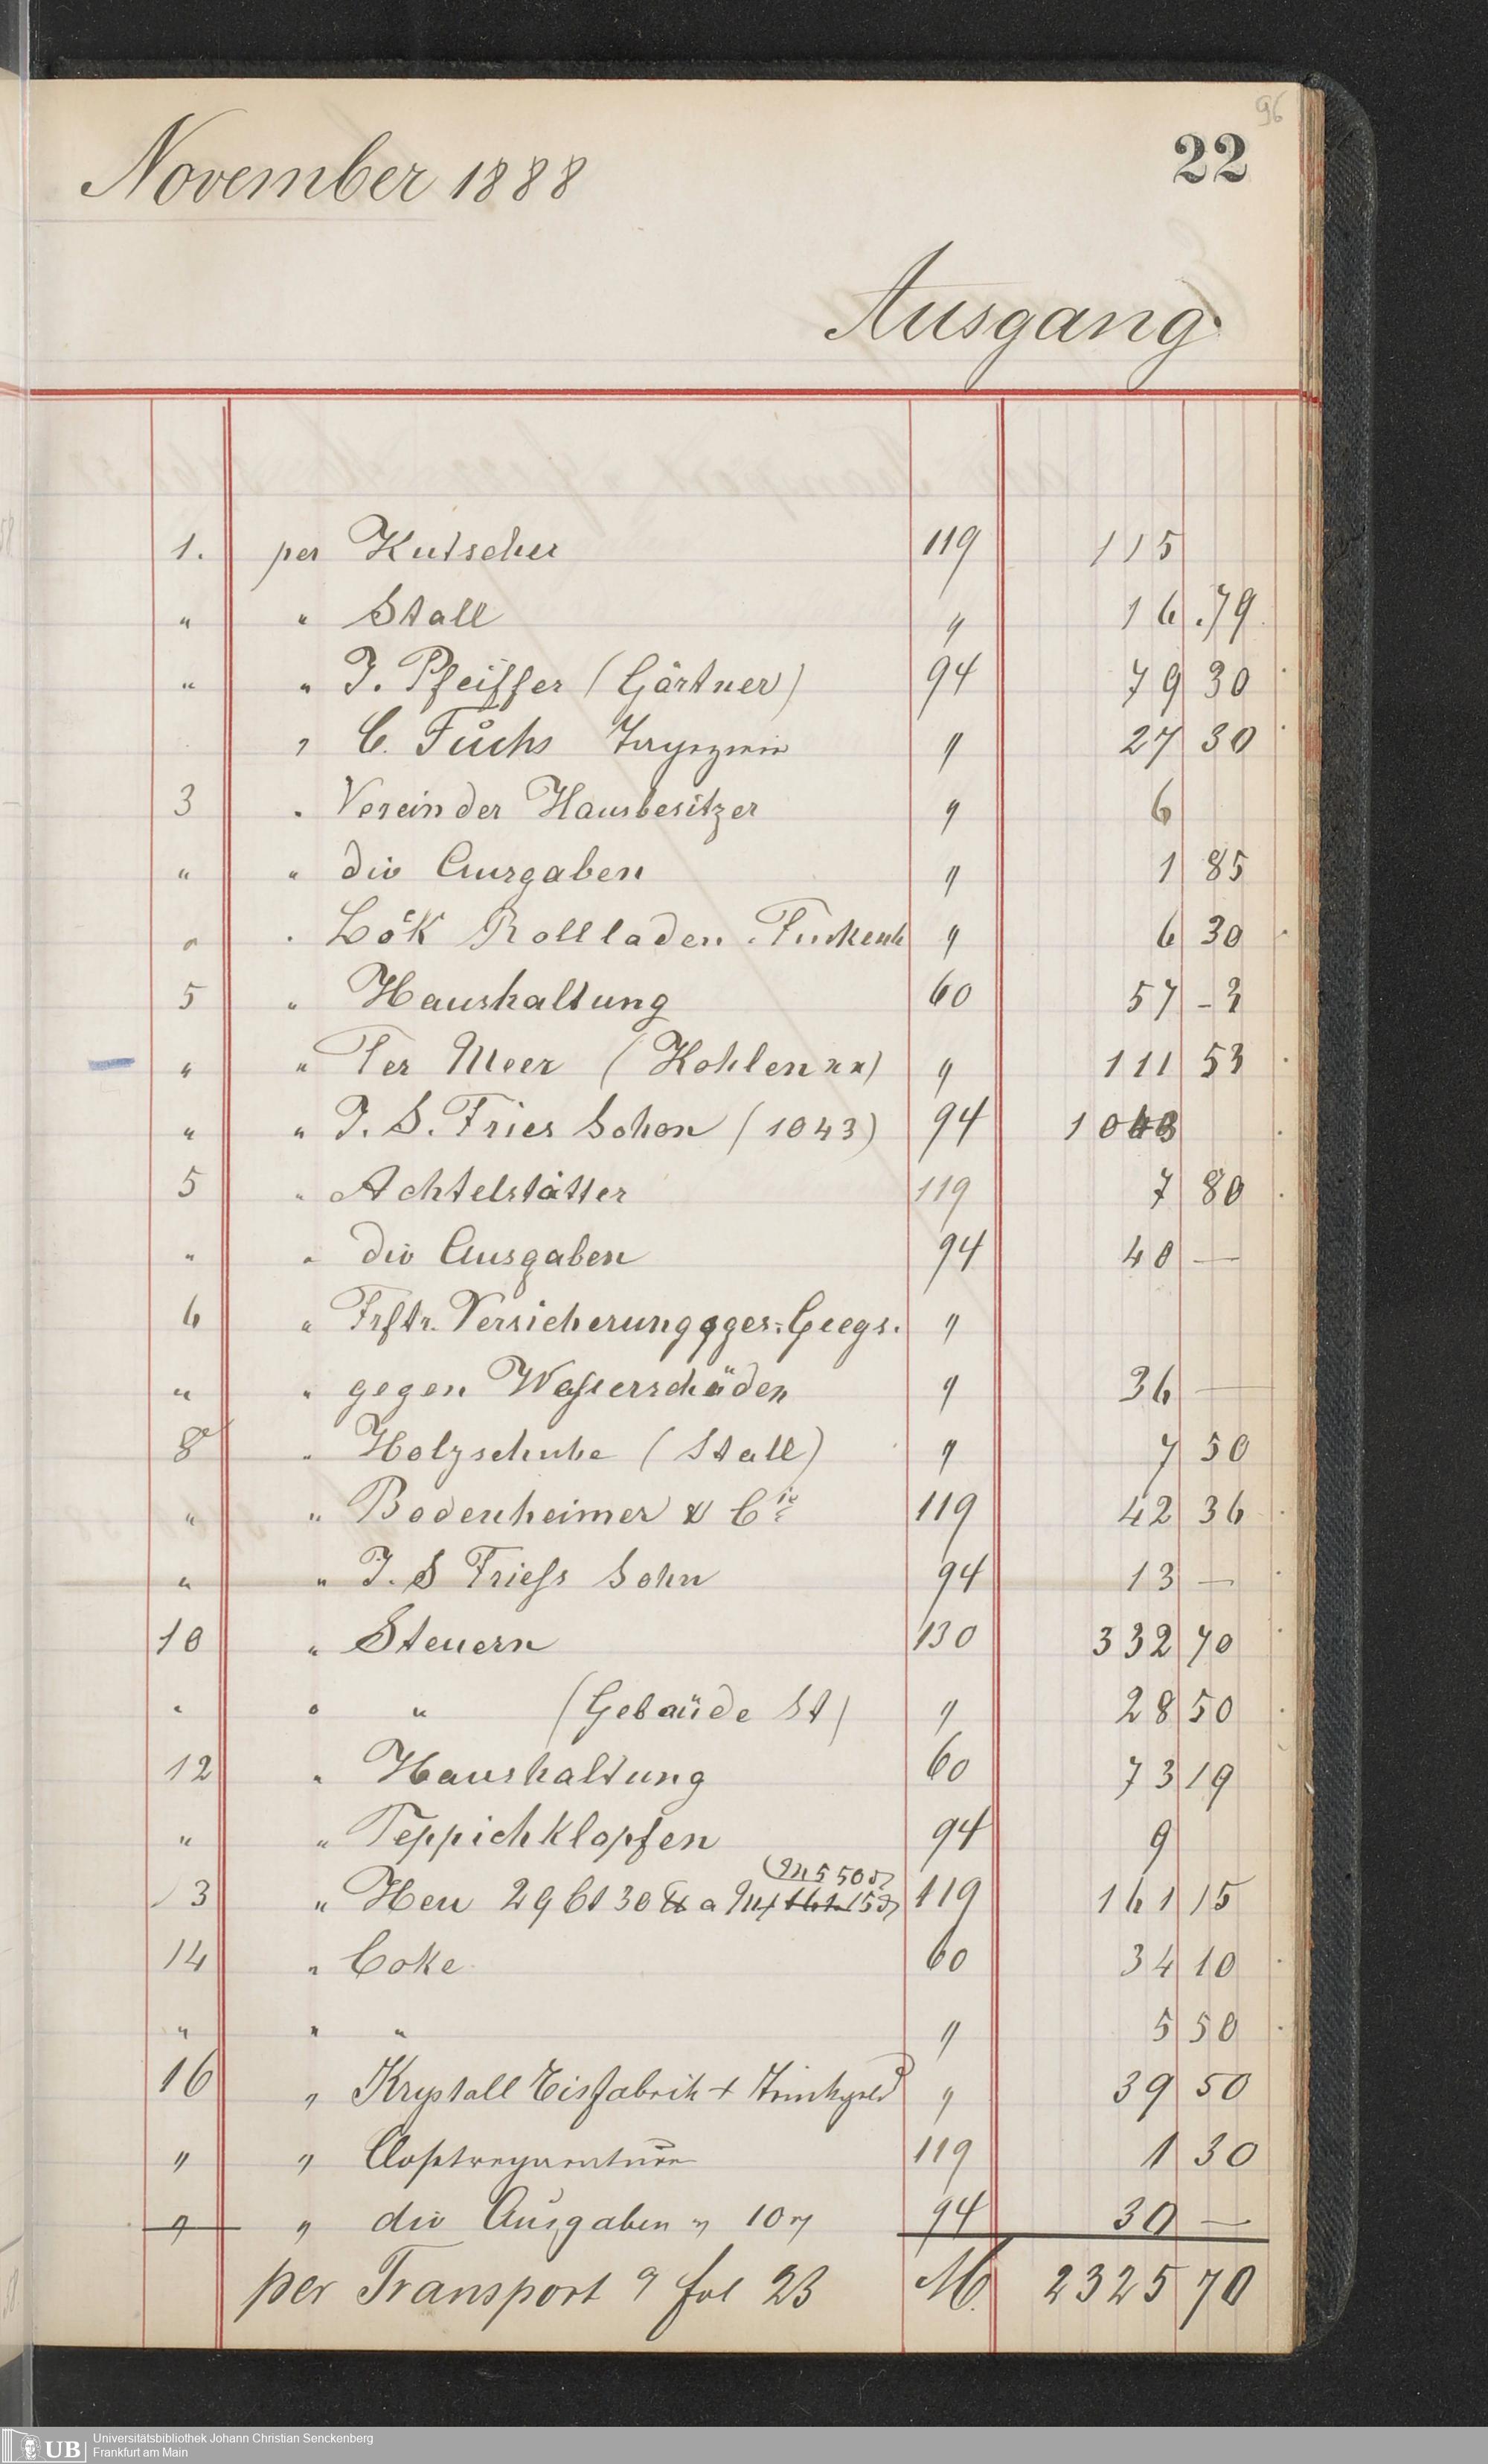 96
22
November 1888
Ausgang.
1. per Kutscher 119 115
" " Stall " 16.79
" " J. Pfeiffer (Gärtner) 94 79 30
" C. Fuchs " 27 30
3 " Verein der Hausbesitzer " 6
" " div Ausgaben " 1 85
" " Rollladen " 6 30
5 " Haushaltung 60 57 - 3
" " Ter Meer (Kohlen xx) " 111 53
" " J. S. Fries Sohon (1043) 94 1043
5 " Achtelstätter 119 7 80
" " div Ausgaben 94 40 —
6 " Frftr. Versicherungsges. "
" " gegen Wasserschäden " 36 —
8 " Holzschuhe (Stall) " 7 50
" " Bodenheimer & Cie 119 42 36
" " J. S Friess Sohn 94 13 —
10 " Steuern 130 332 70
" " " (Gebaüde St) " 28 50
12 " Haushaltung 60 73 19
" " Teppichklopfen 94 9
(M 5 50)
13 " Heu 29 Ct 30 ℔ a M 161.15 119 161 15
14 " Coke 60 34 10
" " " " 5 50
16 " Krystall Eisfabrik + Trinkgeld " 39 50
" " 119 1 30
" " div Ausgaben " 10 " 94 30 —
per Transport fol 23 M. 2325 70
UB
Universitätsbibliothek Johann Christian Senckenberg
Frankfurt am Main